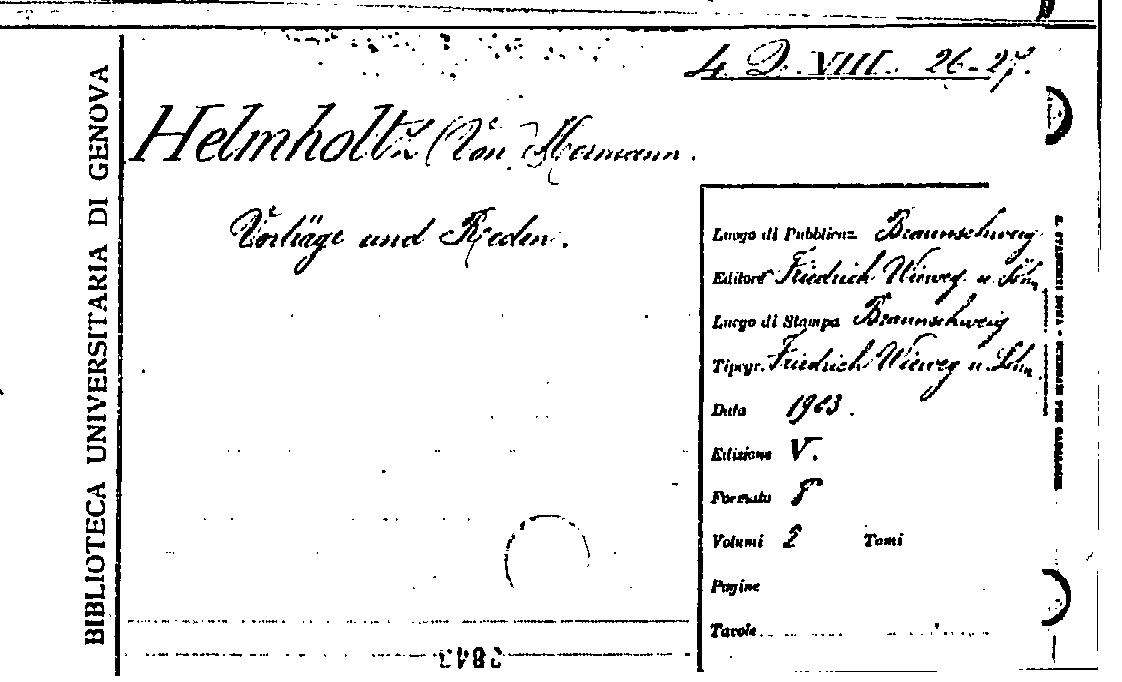 4. D. VIII. 26-27.
BIBLIOTECA UNIVERSITARIA DI GENOVA
Helmholtz (Von) Hermann.
Vorträge und Reden.
Luogo di Pubblicaz. Braunschweig
Editore Friedrich Wieweg u. Sohn
Luogo di Stampa Braunschweig
Tipogr. Friedrich Wieweg u. Sohn
Data 1903.
Edizione V.
Formato 8
Volumi 2 Tomi
Pagine
Tavole
2843